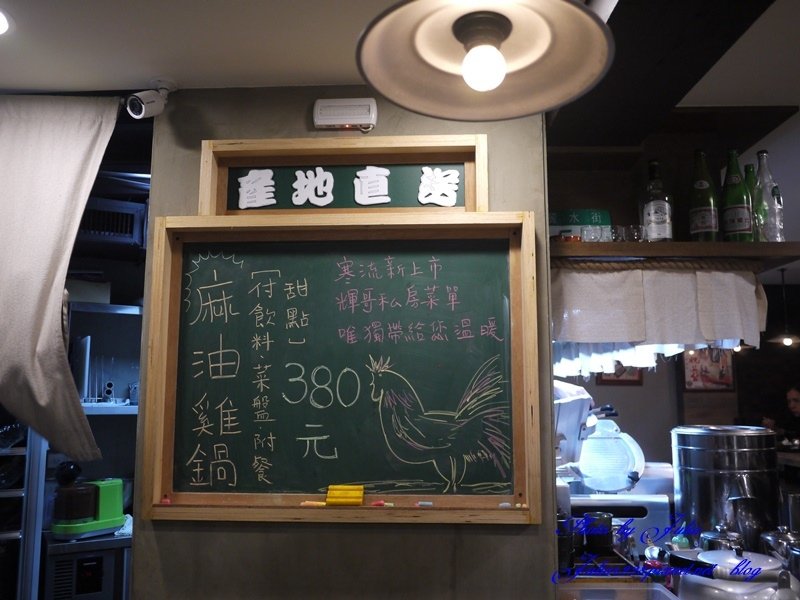 産地直送
寒流新上市
輝哥私房菜單
唯獨帶給您溫暖
麻油雞鍋
[付飲料、菜盤、附餐
甜點]
380
元
水街
Photo by
blog